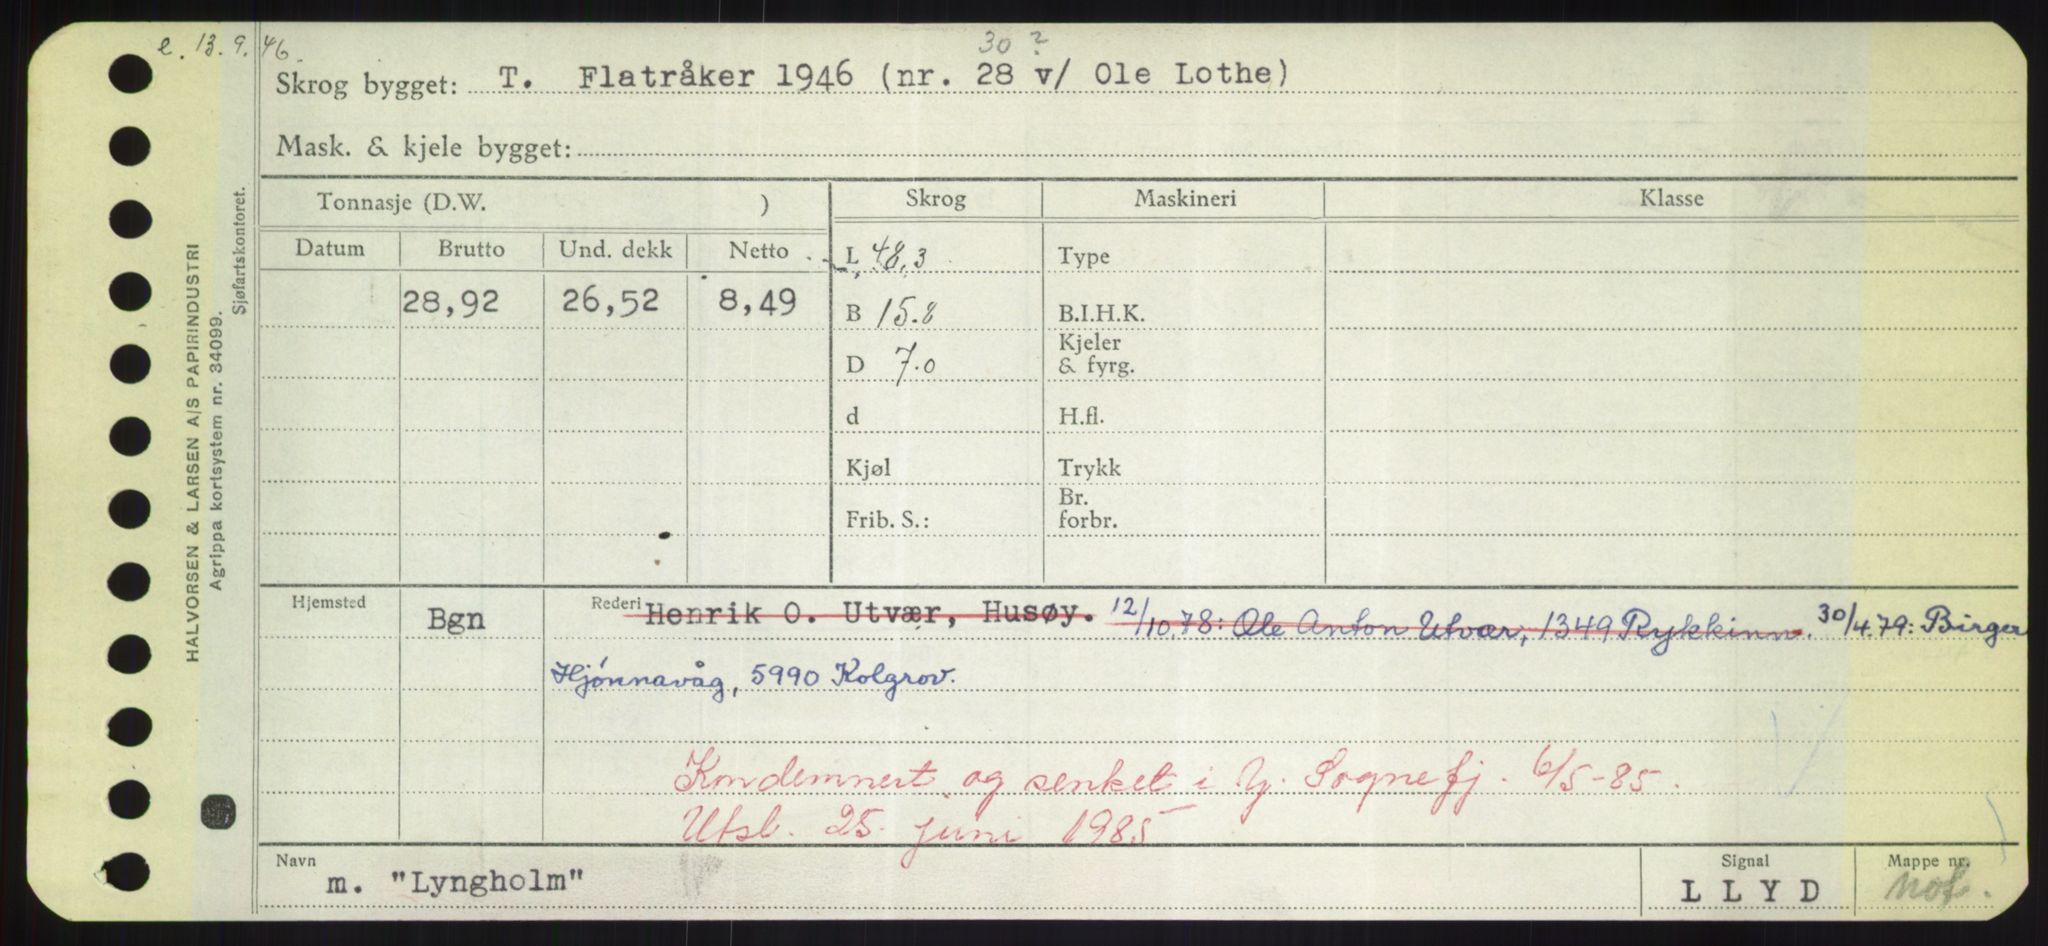 e. 13.9.46.
30 ?
Skrog bygget: T. Flatråker 1946 (nr. 28 v/ Ole Lothe)
Mask. & kjele bygget:
Tonnasje (D.W. ) Skrog Maskineri Klasse
Datum Brutto Und. dekk Netto L 48,3 Type
28,92 26,52 8,49 B 15.8 B.I.H.K.
D 7.0 Kjeler & fyrg.
d H.fl.
Kjøl Trykk
Frib. S.: Br. forbr.
Hjemsted Bgn Rederi Henrik O. Utvær, Husøy. 12/10.78: Ole Anton Utvær, 1349 Rykkinn. 30/4.79: Birger
Hjönnavåg, 5990 Kolgrov.
Kondemnert og senket i Y. Sognefj. 6/5-85.
Utsl. 25. juni 1985
Navn m. "Lyngholm" Signal LLYD Mappe nr. nof.
HALVORSEN & LARSEN A/S PAPIRINDUSTRI
Agrippa kortsystem nr. 34099.
Sjøfartskontoret.